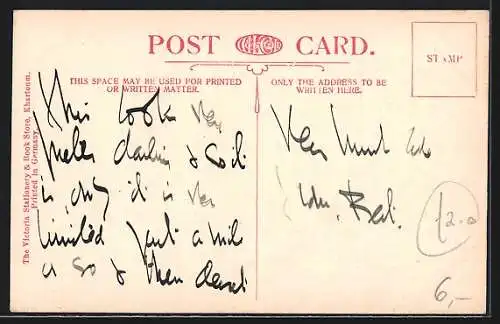 POST CARD.
THIS SPACE MAY BE USED FOR PRINTED
OR WRITTEN MATTER.
ONLY THE ADDRESS TO BE
WRITTEN HERE.
STAMP
The Victoria Stationery & Book Store, Khartoum.
Printed in Germany.
This looks very
pretty darling & so it
is only it is very
limited just a mile
or so & then desert
Very much
6,-